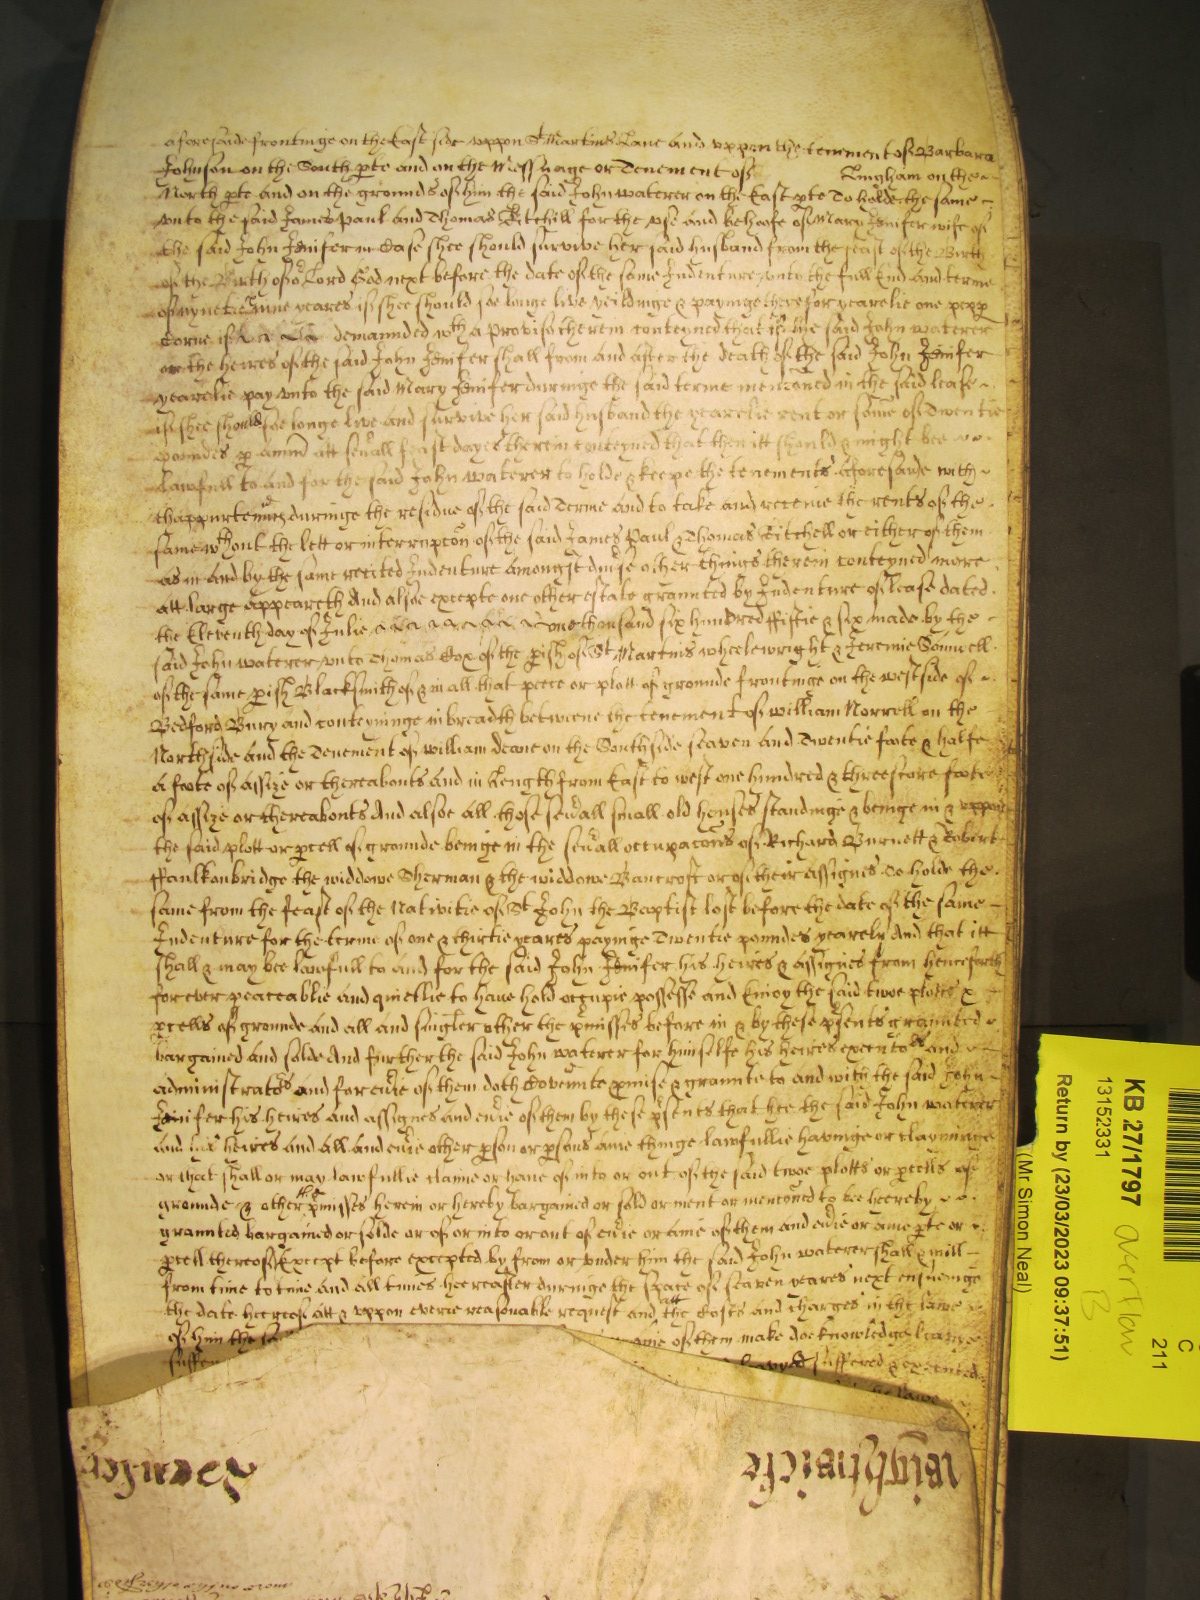 aforesaide frontinge on the East side uppon St Martins Lane and uppon the tenement of Barbara
Johnson on the South pte and on the Messuage or Tenement of Lingham on the
North pte and on the grounds of him the said John waterer on the East pte To holde the same
unto the said James Paul and Thomas Kitchill for the use and behoofe of Mary Jenifer wife of
the said John Jenifer in Case shee should survive her said husband from the feast of the Birth
of the Birth of or Lord God next before the date of the same Indenture unto the full End and terme
of nynetie nine yeares if shee should soe longe live yeildinge & payinge therefor yearelie one pepp
Corne if demannded wth a proviso therein conteyned that if the said John waterer
or the heires of the said John Jenifer shall from and after the death of the said John Jenifer
yearelie pay unto the said Mary Jenifer duringe the said terme menconed in the said lease
if shee should soe longe live and survive her said husband the yearelie rent or some of Twentie
poundes p annu att sevall feast dayes therein conteyned that then itt should & might bee
Lawfull to and for the said John waterer to holde & keepe the tenements aforesaide with
thappurtennces duringe the residue of the said Terme and to take and receive the rents of the
same wthout the lett or interrupcon of the said James Paul & Thomas Kitchell or either of them
as in and by the same recited Indenture amongst divse other things therein conteyned more
att large appeareth And alsoe excepte one other estate grannted by Indenture of lease dated
the Eleventh day of Julie one thousand six hundred fiftie & six made by the
said John waterer unto Thomas Cox of the pish of St Martins wheelewright & Jeremie Sonnell
of the same pish Blacksmith of & in all that peece or plott of grounde frontinge on the west side of
Bedford Bury and conteyninge in breadth betweene the tenement of william Norrell on the
North side and the Tenement of william deane on the South side seaven and Twentie foote & halfe
a foote of assize or thereabouts and in Length from East to west one hundred & threescore foote
of assize or thereabouts And alsoe all those sevall small old houses standinge & beinge in & uppon
the said plott or pcell of grounde beinge in the sevall occupacons of Richard Burnett & Robert
ffaulkonbridge the widdowe Sherman & the widdowe Bancroft or of their assignes To holde the
same from the feast of the Nativitie of St John the Baptist last before the date of the same
Indenture for the terme of one & thirtie yeares payinge Twentie poundes yearely And that itt
shall & may bee lawfull to and for the said John Jenifer his heires & assignes from henceforth
forever peaceablie and quietlie to have hold occupie possesse and Enioy the said twoe plotts &
pcells of grounde and all and singler other the pmisses before in & by these psents grannted
bargained and solde And further the said John waterer for himselfe his heires executors and
administrators and for evie of them doth Covennte pmise & grannte to and with the said John
Jenifer his heires and assignes and evie of them by these psents that hee the said John waterer
and his heires and all and evie other pson or psons anie thinge lawfullie havinge or clayminge
or that shall or may lawfullie clame or have of in to or out of the said twoe plotts or pcells of
grounde & other the pmisses herein or hereby bargained or sold or ment or menconed to bee heereby
grannted bargained or solde or of or in to or out of evie or anie of them and evie or anie pte or
pcell thereof Except before excepted by from or under him the said John waterer shall & will
from time to time and all times hereafter duringe the space of seaven yeares next ensueinge
the date hereof att & uppon everie reasonable request and att the Costs and charges in the lawe
of him the anie of them make doe knowledge
suffered & executed
the lawe
KB 27/1797
13152331
Return by (23/03/2023 09:37:51)
(Mr Simon Neal)
C
211
overflow
B